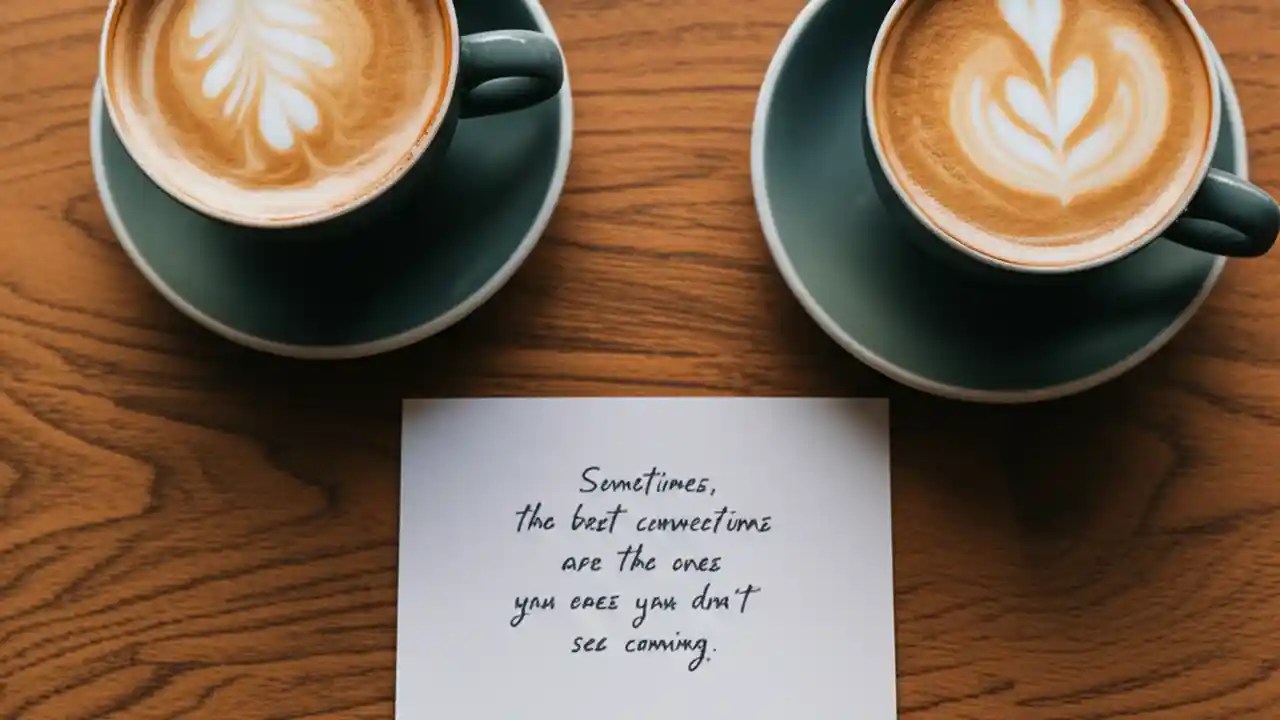 Sometimes,
the best connections
are the ones
you you don't
see coming.